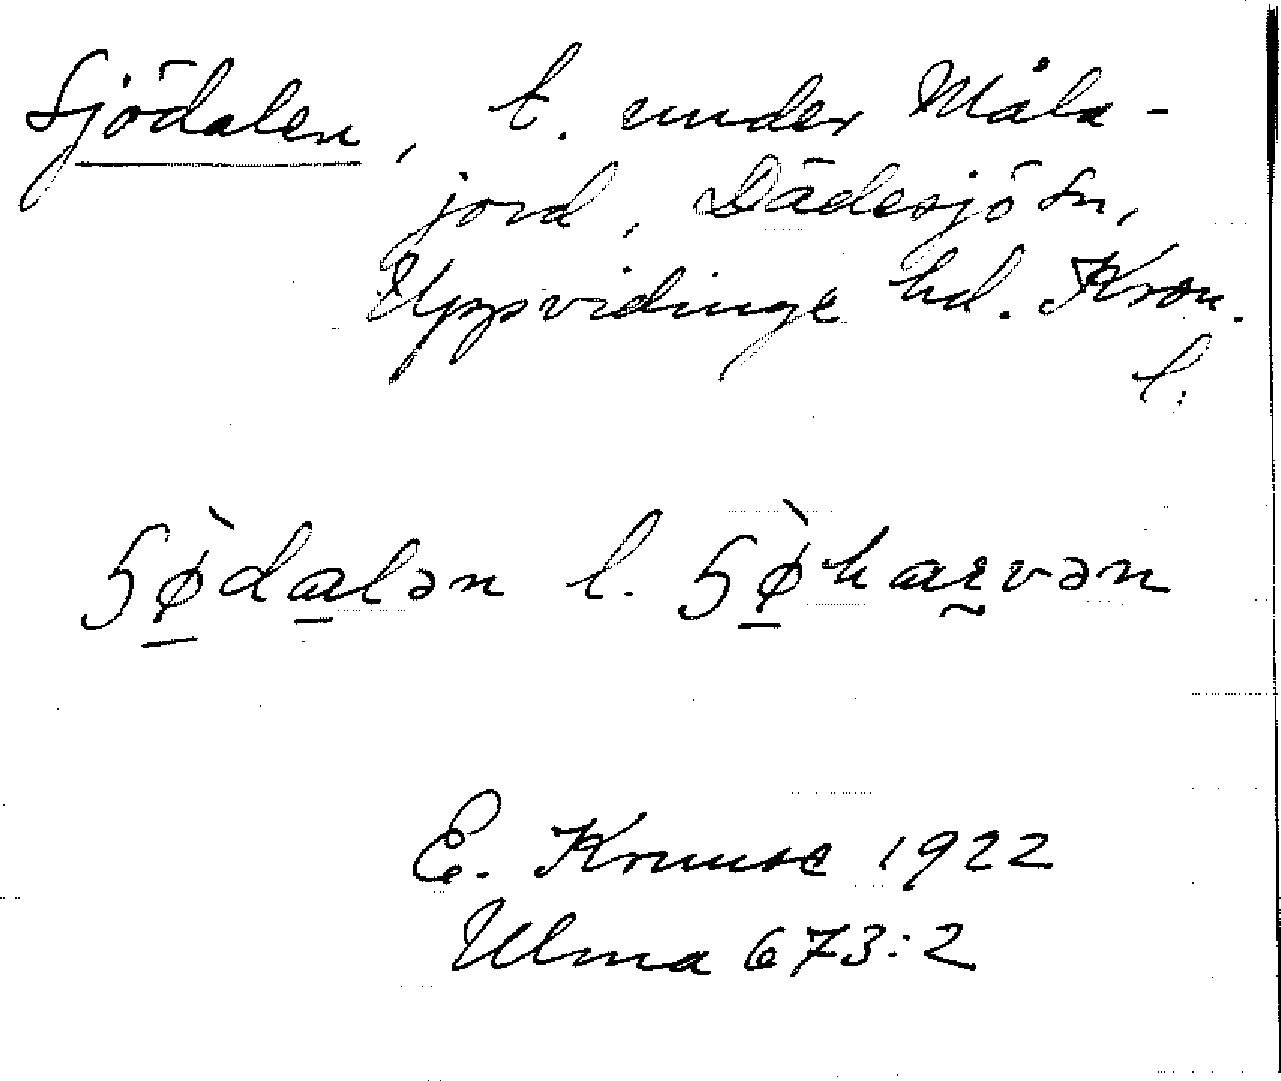 Sjödalen, t. under Måla-
jord, Dädesjö sn,
Uppvidinge hd. Kron.
l.
ꞩø̠̀da̠lən l. ꞩø̠̀haꭋvən
E. Kruuse 1922
Ulma 673:2